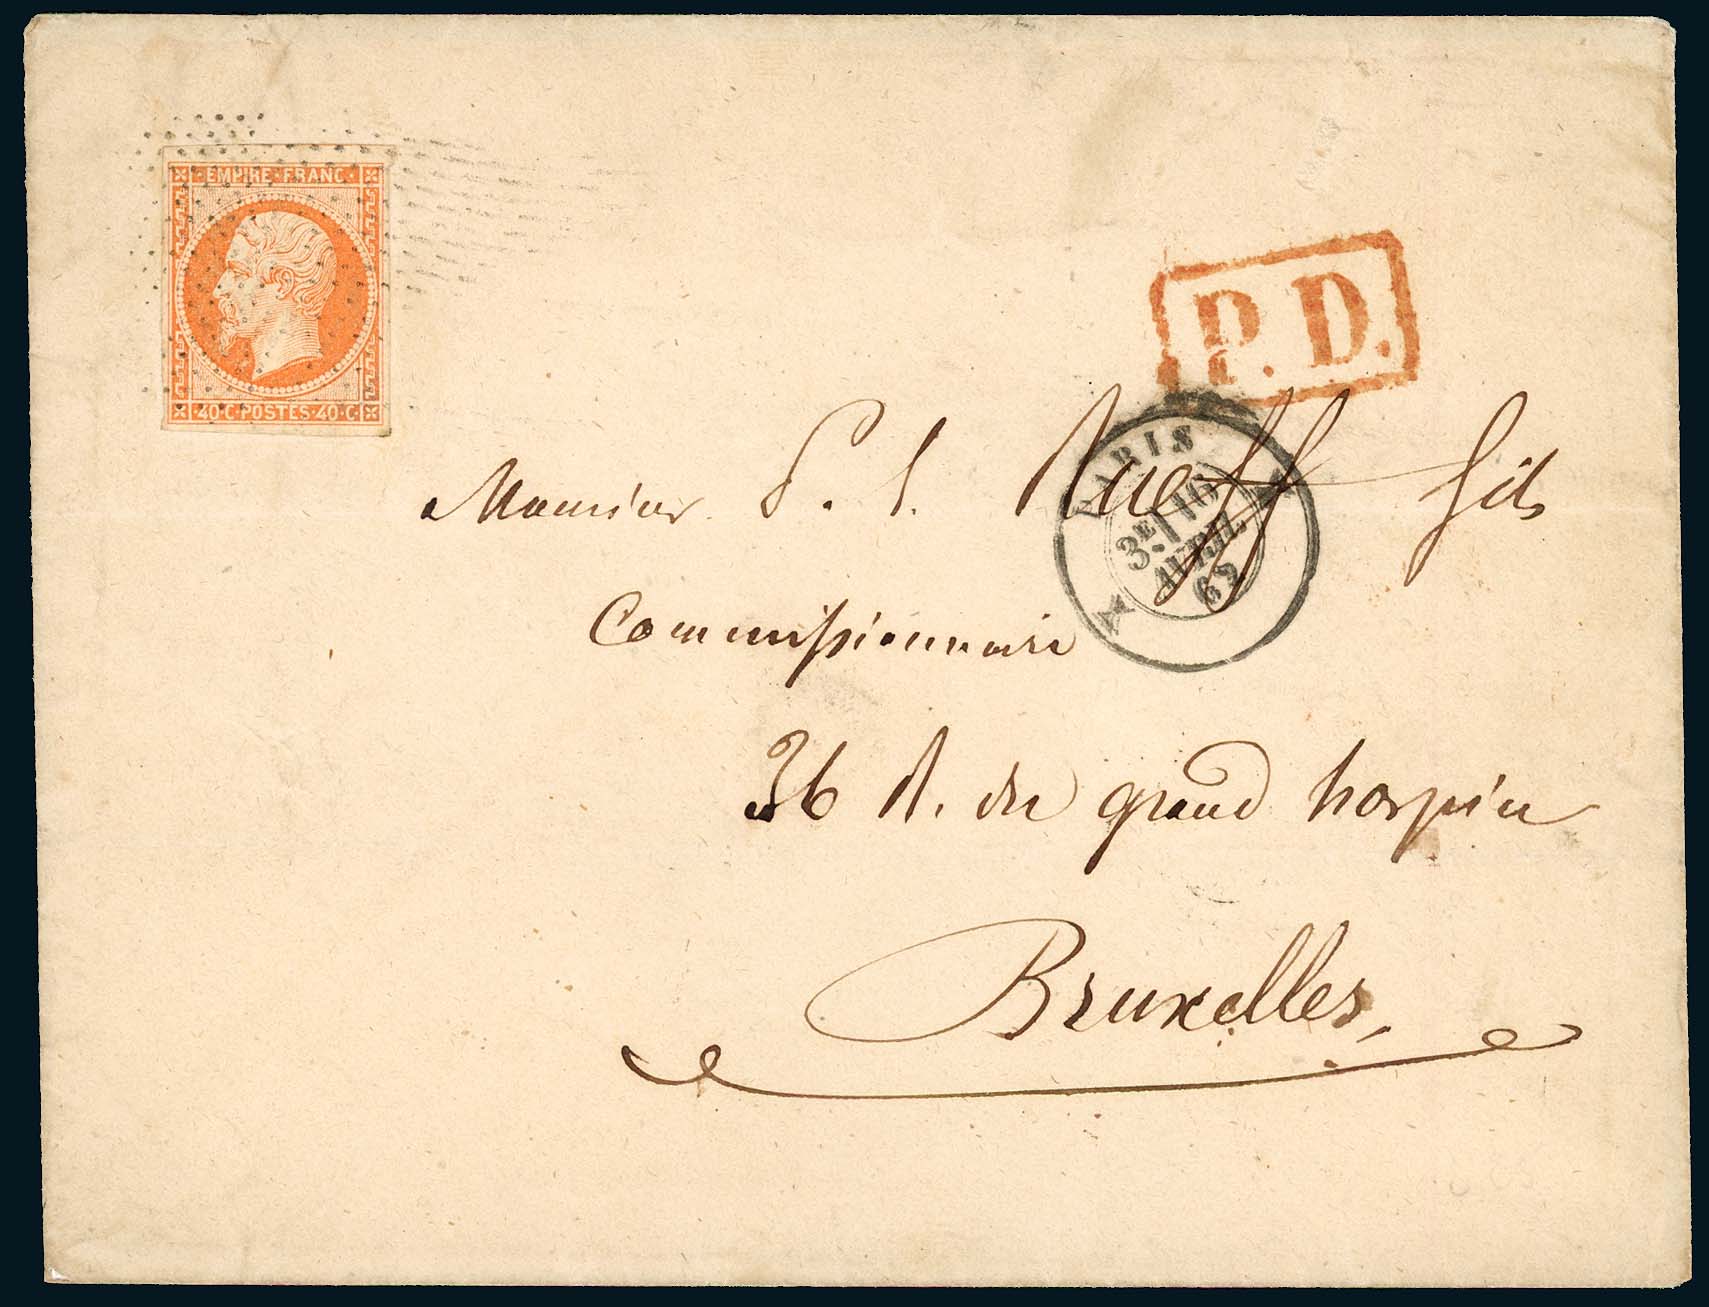 EMPIRE·FRANC·
40·C·POSTES·40·C·
P.D.
PARIS
3E 16
AVRIL
62
Monsieur P. S. Rueff fils
Commissionnaire
36 R. du grand hospice
Bruxelles,